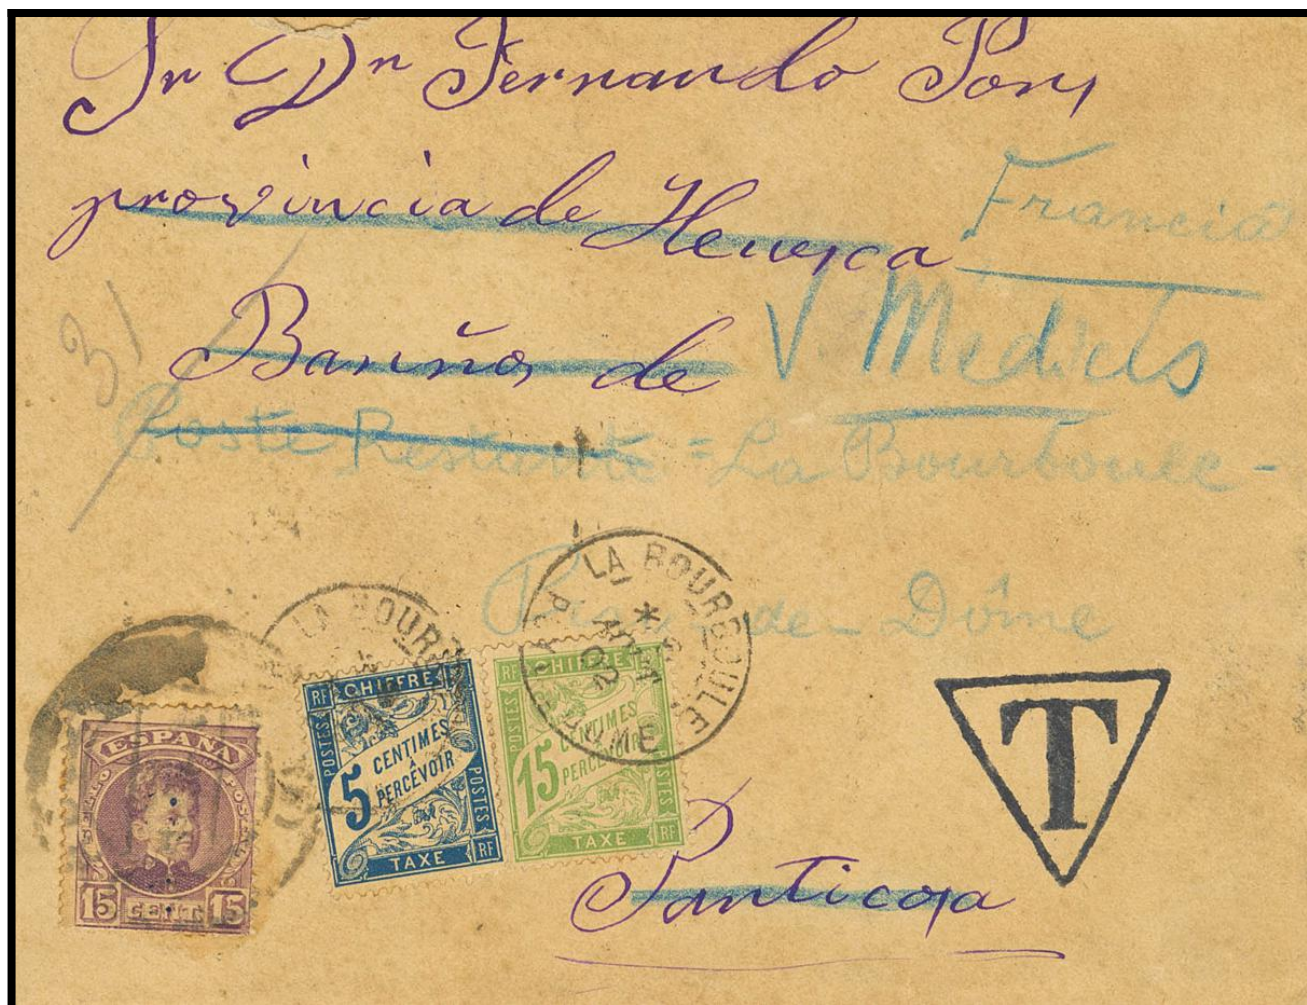 Sr Dn Fernando Pons
provincia de Huesca
Francia
Baños de
V Médicis
31
Poste Restante = La Bourboule -
Puy-de-Dôme
LA BOURBOULE
PUY-DE-DOME
AOUT
02
LA BOURB
ESPAÑA
15 CENT. 15
RF CHIFFRE
POSTES
5 CENTIMES
À
PERCEVOIR
POSTES
TAXE RF
RF CHIFFRE
POSTES
15 CENTIMES
PERCEVOIR
TAXE RF
T
Panticosa